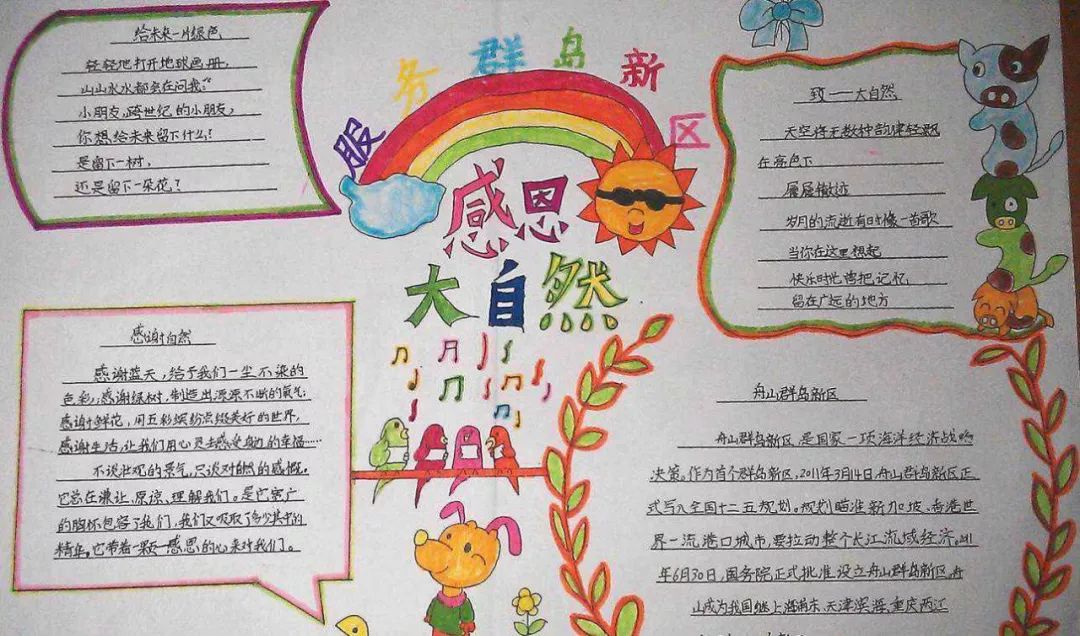 服务群岛新区
感恩
大自然
给未来一片绿色
轻轻地打开地球画册，
山山水水都会在问我："
小朋友，跨世纪的小朋友，
你想给未来留下什么！
是留下一树，
还是留下一朵花？
致——大自然
天空将无数种韵律轻敲
在亮色下
屡屡撤迹
岁月的流逝有时像一首歌
当你在这里想起
快乐时光曾把记忆
留在广远的地方
感谢自然
感谢蓝天，给予我们一尘不染的
色彩，感谢绿树，制造出源源不断的氧气；
感谢鲜花，用五彩缤纷点缀美好的世界，
感谢生活，让我们用心灵去感受身边的幸福……
不谈壮观的景气，只谈对自然的感慨。
它总在谦让、原谅、理解我们。是它宽广
的胸怀包容了我们，我们又吸取了多少其中的
精华。它带着一颗感恩的心来对我们。
舟山群岛新区
舟山群岛新区，是国家一项海洋经济战略
决策。作为首个群岛新区，2011年3月14日，舟山群岛新区正
式写入全国十二五规划。规划瞄准新加坡、香港世
界一流港口城市，要拉动整个长江流域经济。2011
年6月30日，国务院正式批准设立舟山群岛新区，舟
山成为我国继上海浦东、天津滨海、重庆两江